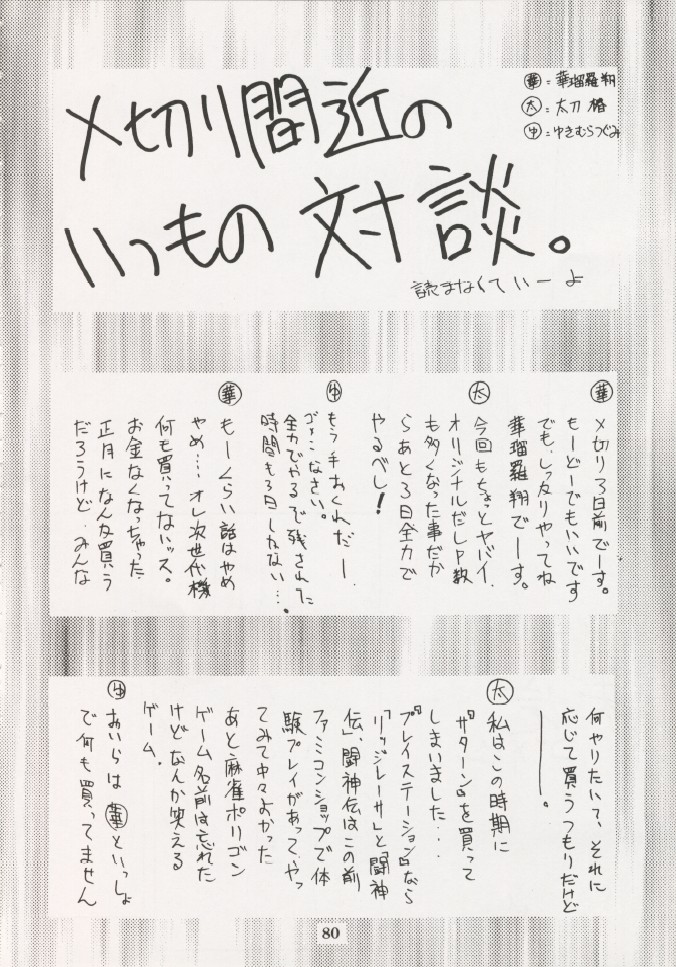 〆切り間近の
いつもの対談。
読まなくていーよ
華=華瑠羅翔
太=太刀椿
ゆ=ゆきむらつぐみ
華 〆切り3日前でーす。
もーどーでもいいです
でも、しっかりやってね
華瑠羅翔でーす。
太 今回もちょっとヤバイ、
オリジナルだしP数
も多くなった事だか
らあと3日全力で
やるべし!
ゆ もう手おくれだー、
ゴメンなさい。
全力でやるで残された
時間も3日しかない…。
華 もーくらい話はやめ
やめ…オレ次世代機
何も買ってないッス。
お金なくなっちゃった
正月になんか買う
だろうけど、みんな
何やりたいて、それに
応じて買うつもりだけど
――。
太 私はこの時期に
『サターン』を買って
しまいました…
『プレイステーション』なら
『リッジレーサ』と闘神
伝」、闘神伝はこの前
ファミコンショップで体
験プレイがあって、やっ
てみて中々よかった
あと麻雀ポリゴン
ゲーム名前は忘れた
けどなんか笑える
ゲーム.
ゆ おいらは華といっしょ
で何も買ってません
80